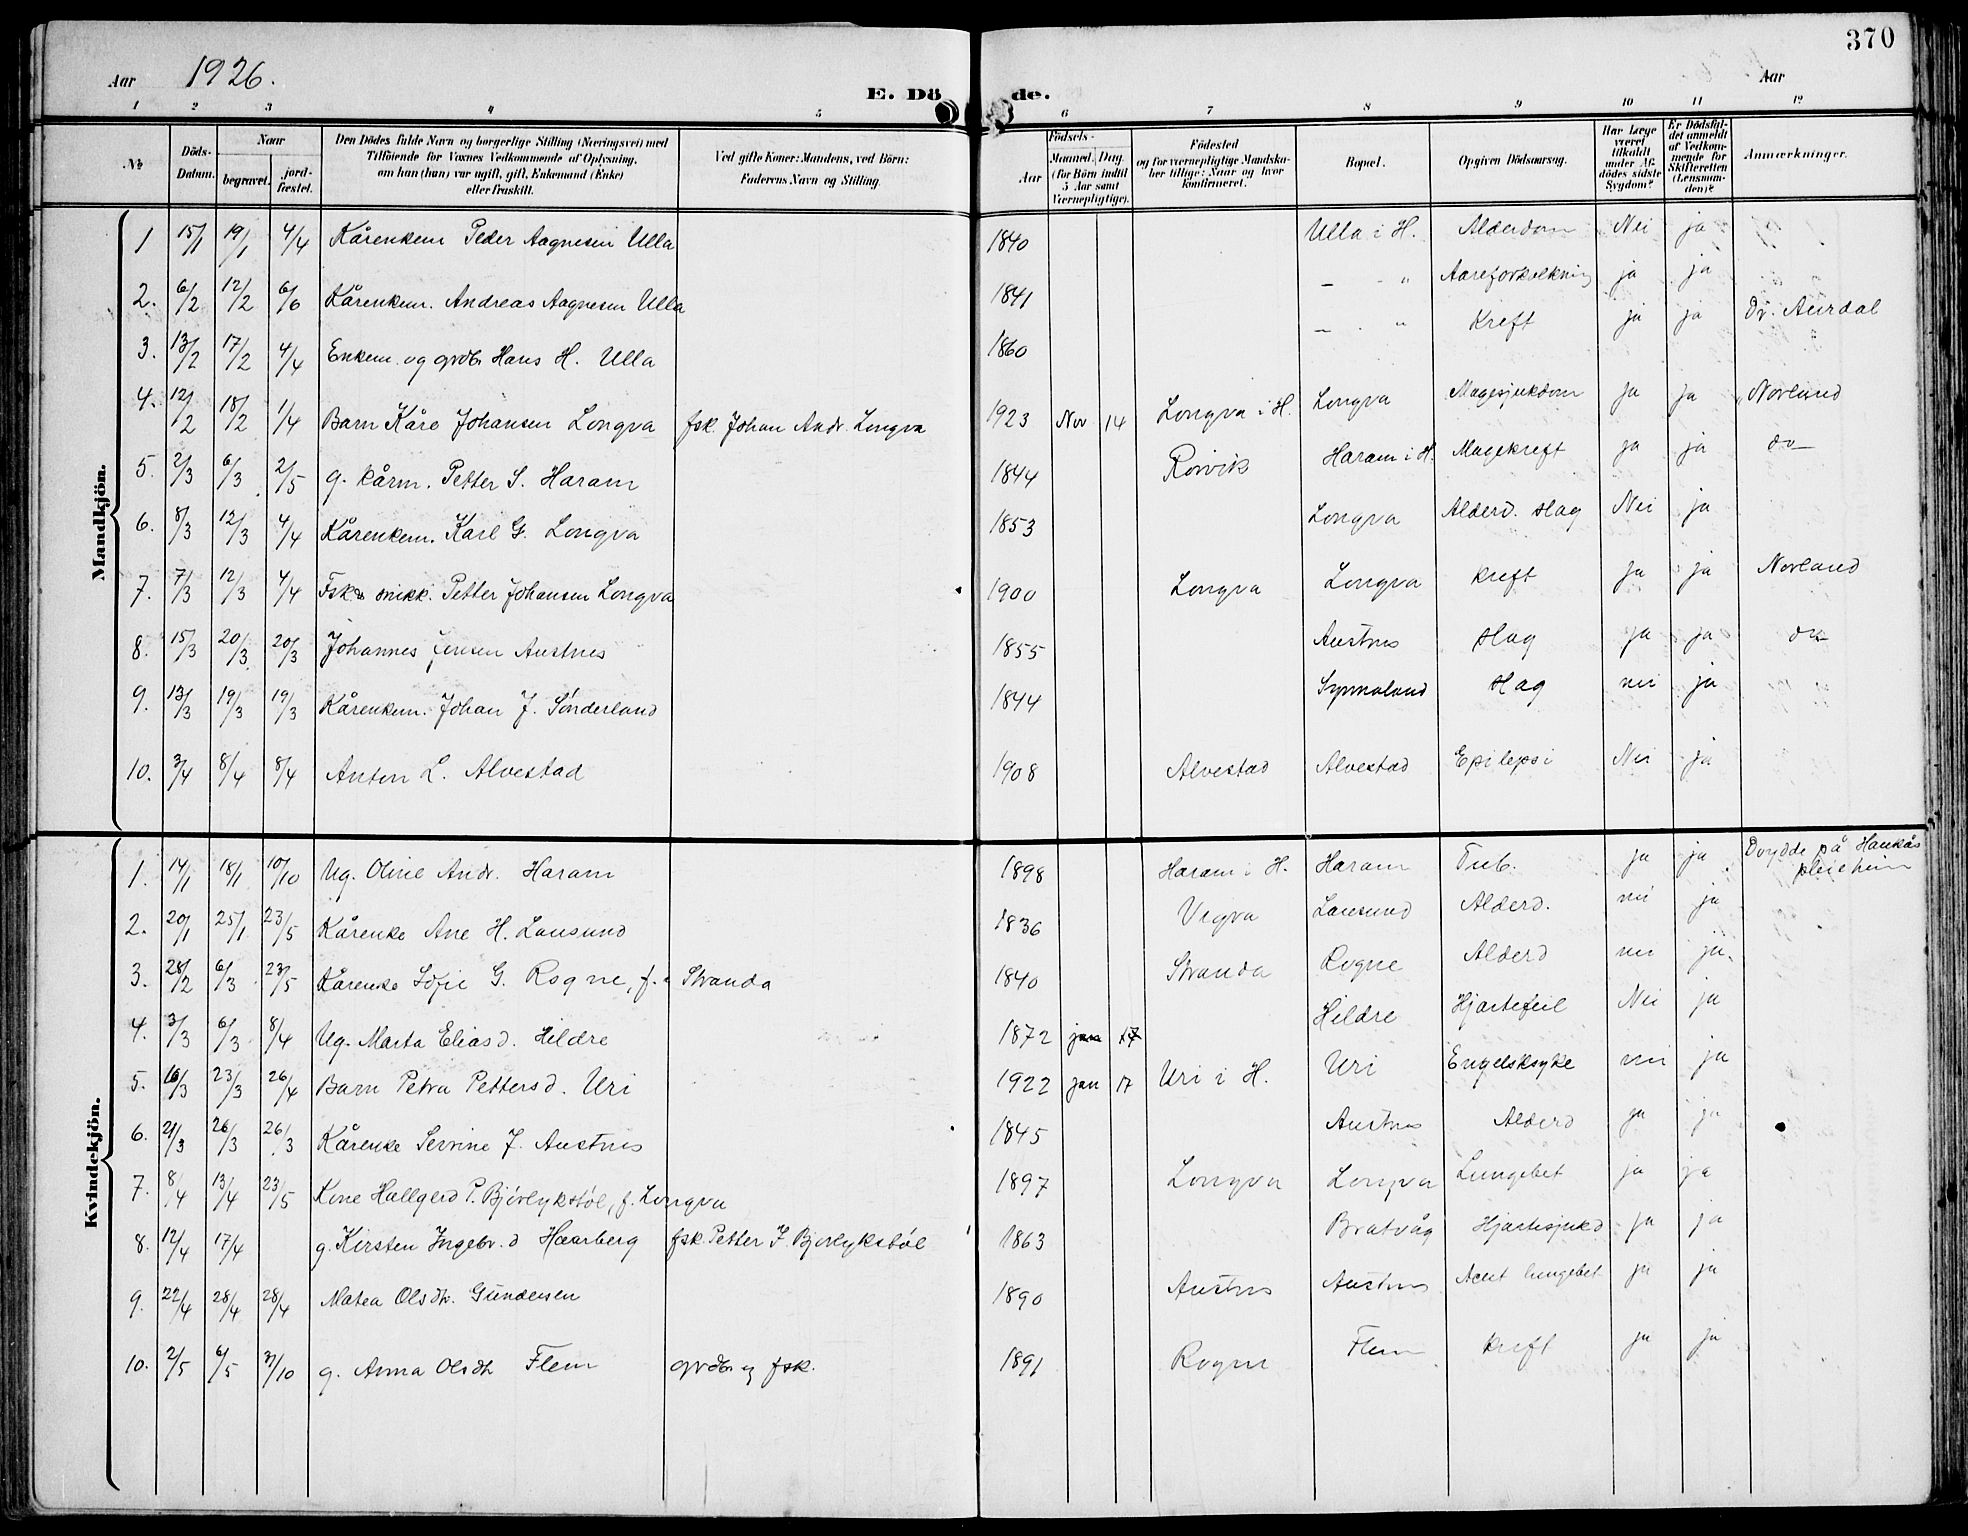 370
Aar 1926. E. Döde. Aar
1 2 3 4 5 6 7 8 9 10 11 12
No
Döds-Datum.
Naar
begravet. jordfæstet.
Den Dödes fulde Navn og borgerlige Stilling (Næringsvei) med Tilföiende for Voxnes Vedkommende af Oplysning, om han (hun) var ugift, gift, Enkemand (Enke) eller fraskilt.
Ved gifte Koner: Mandens, ved Börn: Faderens Navn og Stilling.
Födsels-
Aar Maaned. Dag. (for Börn indtil 5 Aar samt Værnepligtige).
Födested og for værnepligtige Mandskaber tillige: Naar og hvor konfirmeret.
Bopæl.
Opgiven Dödsaarsag.
Har Læge været tilkaldt under Afdödes sidste Sygdom?
Er Dödsfaldet anmeldt af Vedkommende for Skifteretten (Lensmanden)?
Anmærkninger.
Mandkjön.
1 15/1 19/1 4/4 Kårenkem Peder Aagnesen Ulla 1840 Ulla i H. Alderdom Nei ja
2. 6/2 12/2 6/6 Kårenkem. Andreas Aagnesen Ulla 1841 – - " Aareforkalkning ja ja
3. 13/2 17/2 4/4 Enkem. og grdb. Hans H. Ulla 1860 – . " Kreft ja ja Dr. Aurdal
4. 12/2 18/2 1/4 Barn Kåre Johansen Longva fsk. Johan Andr. Longva 1923 Nov 14 Longva i H. Longva Magesjukdom ja ja Norland
5. 2/3 6/3 2/5 g. kårm. Petter S. Haram 1844 Rovik Haram i H. Magekreft ja ja do
6. 8/3 12/3 4/4 Kårenkem. Karl G. Longva 1853 Longva Alderd. slag Nei ja
7. 7/3 12/3 4/4 Fsk. snikk. Petter Johansen Longva 1900 Longva Longva kreft ja ja Norland
8. 15/3 20/3 20/3 Johannes Jensen Austnes 1855 Austnes slag ja ja do
9. 13/3 19/3 19/3 Kårenkem. Johan J. Sönderland 1844 Synnaland slag nei ja
10. 3/4 8/4 8/4 Anton L. Alvestad 1908 Alvestad Alvestad Epilepsi Nei ja
Kvindekjön.
1. 14/1 18/1 10/10 Ug. Oline Andr. Haram 1898 Haram i H. Haram Tub. ja ja Døydde på Haukås pleieheim
2. 20/1 25/1 23/5 Kårenke Ane H. Lausund 1836 Vigva Lausund Alderd. nei ja
3. 28/2 6/3 23/5 Kårenke Sofie G. Rogne, f. Stranda 1840 Stranda Rogne Alderd nei ja.
4. 3/3 6/3 8/4 Ug. Marta Eliasd. Hildre 1872 jan 17 Hildre Hjartefeil Nei ja
5. 16/3 23/3 26/4 Barn Petra Pettersd. Uri 1922 jan 17 Uri i H. Uri Engelsksyke nei ja
6. 21/3 26/3 26/3 Kårenke Serine J. Austnes 1845 Austnes Alderd ja ja
7. 8/4 13/4 23/5 Kone Hallgerd P. Bjørlykstøl, f. Longva 1897 Longva Longva Lungebet ja ja
8. 12/4 17/4 g. Kirsten Ingebr.d Haarberg fsk. Petter J. Bjørlykstøl 1863 Bratvåg Hjartesjukd ja ja
9. 22/4 28/4 28/4 Matea Olsdtr. Gundersen 1890 Austnes Austnes Acut lungebet ja ja
10. 2/5 6/5 31/10 g. Anna Olsdtr Flem grdb. og fsk. 1891 Rogne Flem kreft ja ja